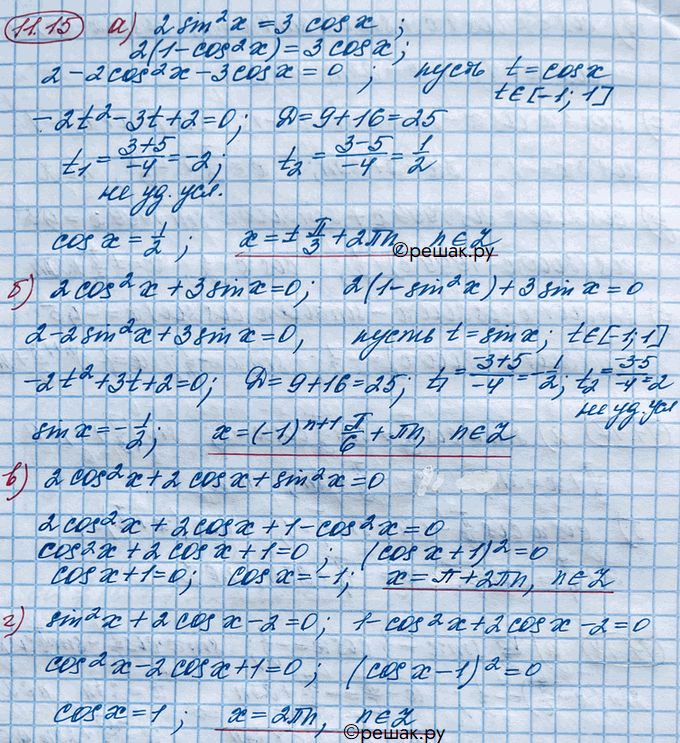 11.15 а) 2 sin²x = 3 cosx ;
2(1-cos²x) = 3 cosx;
2 - 2cos²x - 3cosx = 0 ; пусть t = cosx
t∈[-1; 1]
-2t² - 3t + 2 = 0; D = 9 + 16 = 25
t₁ = (3+5)/(-4) = -2; t₂ = (3-5)/(-4) = 1/2
не уд. усл.
cos x = 1/2 ; x = ± π/3 + 2πn, n∈Z
©решак.ру
б) 2 cos²x + 3 sinx = 0; 2(1-sin²x) + 3 sinx = 0
2 - 2 sin²x + 3 sinx = 0, пусть t = sinx; t∈[-1;1]
-2t² + 3t + 2 = 0; D = 9 + 16 = 25; t₁ = (-3+5)/(-4) = -1/2; t₂ = (-3-5)/(-4) = 2
не уд. усл
sin x = -1/2; x = (-1)ⁿ⁺¹ π/6 + πn, n∈Z
в) 2 cos²x + 2 cosx + sin²x = 0
2 cos²x + 2cosx + 1 - cos²x = 0
cos²x + 2 cosx + 1 = 0 ; (cosx + 1)² = 0
cosx + 1 = 0; cosx = -1; x = π + 2πn, n∈Z
г) sin²x + 2 cosx - 2 = 0; 1 - cos²x + 2 cosx - 2 = 0
cos²x - 2 cosx + 1 = 0 ; (cosx - 1)² = 0
cosx = 1 ; x = 2πn, n∈Z
©решак.ру